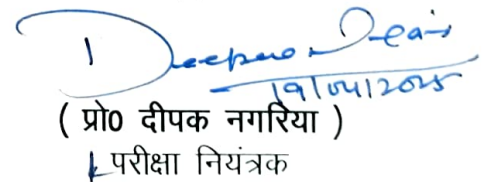 19/04/2025
( प्रो0 दीपक नगरिया )
परीक्षा नियंत्रक